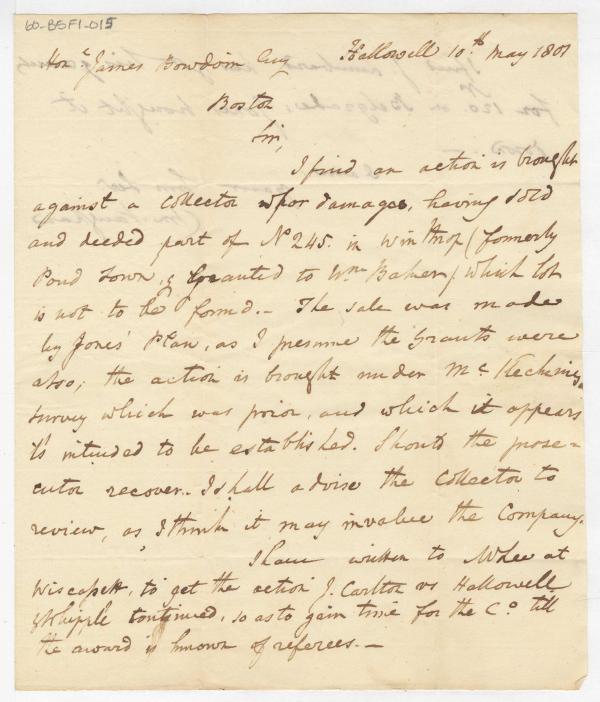 60-BGF1-015
Honle James Bowdoin Esq Hallowell 10.th May 1801
Boston
Sir,
I find an action is brought
against a Collector for damages, having sold
and deeded part of No 245. in Winthrop (formerly
Pond Town, & Granted to Wm Baker) which lot
is not to be found.- The sale was made
by Jones' Plan, as I presume the Grants were
also; the action is brought under McKechnies
survey which was prior, and which it appears
is intended to be established. Should the prose=
cutor recover. I shall advise the Collector to
review, as I think it may involve the Company.
I have written to Mr Lee at
Wiscassett, to get the action J. Carlton vs Hallowell
& Whipple continued, so as to gain time for the Co till
the award is known of referees.-